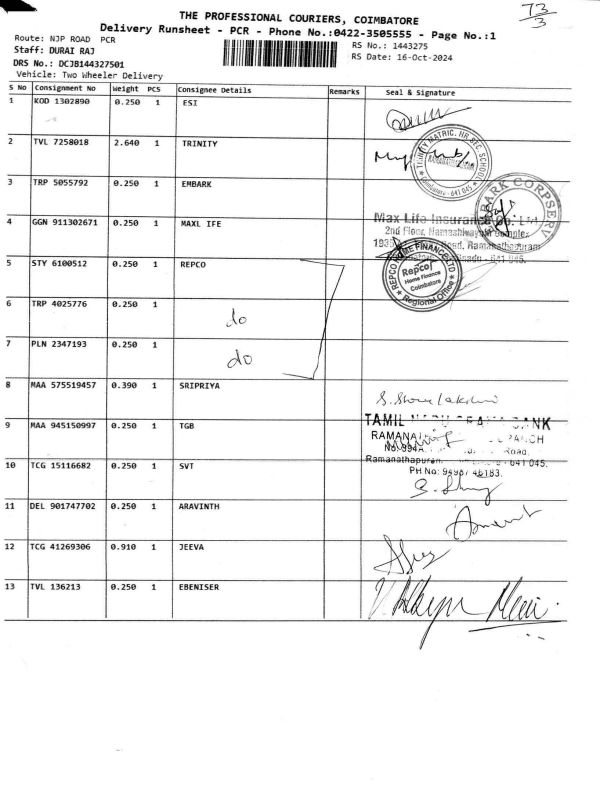 THE PROFESSIONAL COURIERS, COIMBATORE
73/3
Delivery Runsheet - PCR - Phone No.:0422-3505555 - Page No.:1
Route: NJP ROAD PCR
RS No.: 1443275
Staff: DURAI RAJ
RS Date: 16-Oct-2024
DRS No.: DCJB144327501
Vehicle: Two Wheeler Delivery
S No Consignment No Weight PCS Consignee Details Remarks Seal & Signature
1 KOD 1302890 0.250 1 ESI
2 TVL 7258018 2.640 1 TRINITY
TRINITY MATRIC. HR. SEC. SCHOOL
Coimbatore - 641 045
3 TRP 5055792 0.250 1 EMBARK
EMBARK CORPSERV
4 GGN 911302671 0.250 1 MAXL IFE
Max Life Insurance Co. Ltd
2nd Floor, Complex
Road, Ramanathapuram
641 045.
5 STY 6100512 0.250 1 REPCO
REPCO HOME FINANCE LTD
Repco
Home Finance
Coimbatore
Regional Office
6 TRP 4025776 0.250 1 do
7 PLN 2347193 0.250 1 do
8 MAA 575519457 0.390 1 SRIPRIYA
9 MAA 945150997 0.250 1 TGB
TAMIL BANK
Road,
Ramanathapuram, 641 045.
10 TCG 15116682 0.250 1 SVT
11 DEL 901747702 0.250 1 ARAVINTH
12 TCG 41269306 0.910 1 JEEVA
13 TVL 136213 0.250 1 EBENISER